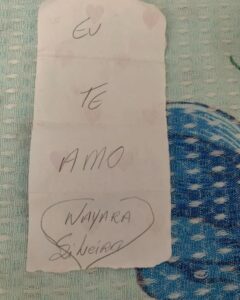 EU
TE
AMO
NAYARA